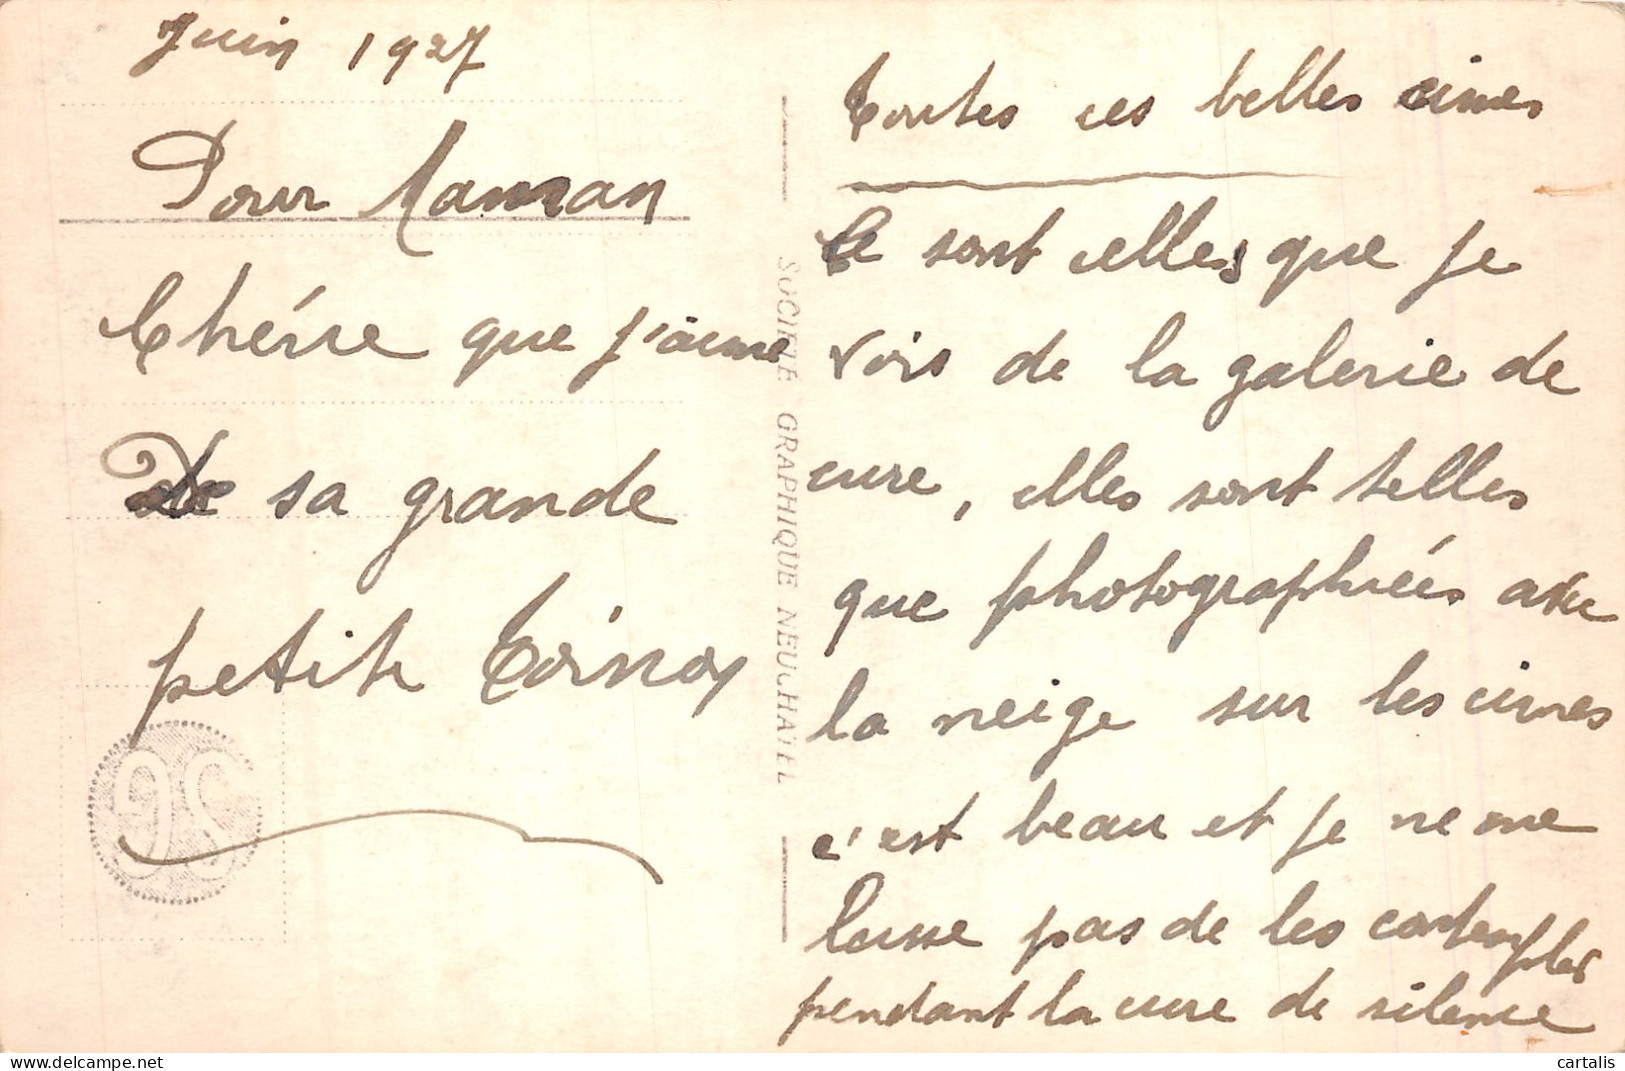 Juin 1927
Pour Maman
Chérie que j'aime
De sa grande
petite Toinon
SOCIÉTÉ GRAPHIQUE NEUCHATEL
Toutes ces belles cimes
Ce sont celles que je
vois de la galerie de
cure, elles sont telles
que photographiées avec
la neige sur les cimes
c'est beau et je ne me
lasse pas de les contempler
pendant la cure de silence
SG
cartalis